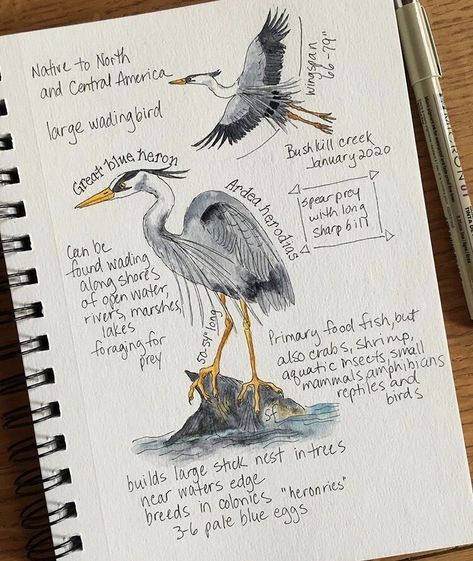 Native to North
and Central America
large wading bird
wingspan
66-79"
Bushkill creek
January 2020
Great blue heron
Ardea herodias
spear prey
with long
sharp bill
Can be
found wading
along shores
of open water,
rivers, marshes,
lakes
foraging for
prey
50-54" long
Primary food fish, but
also crabs, shrimp,
aquatic insects, small
mammals, amphibians
reptiles and
birds
SF
builds large stick nest in trees
near waters edge
breeds in colonies "heronries"
3-6 pale blue eggs
MICRON 01